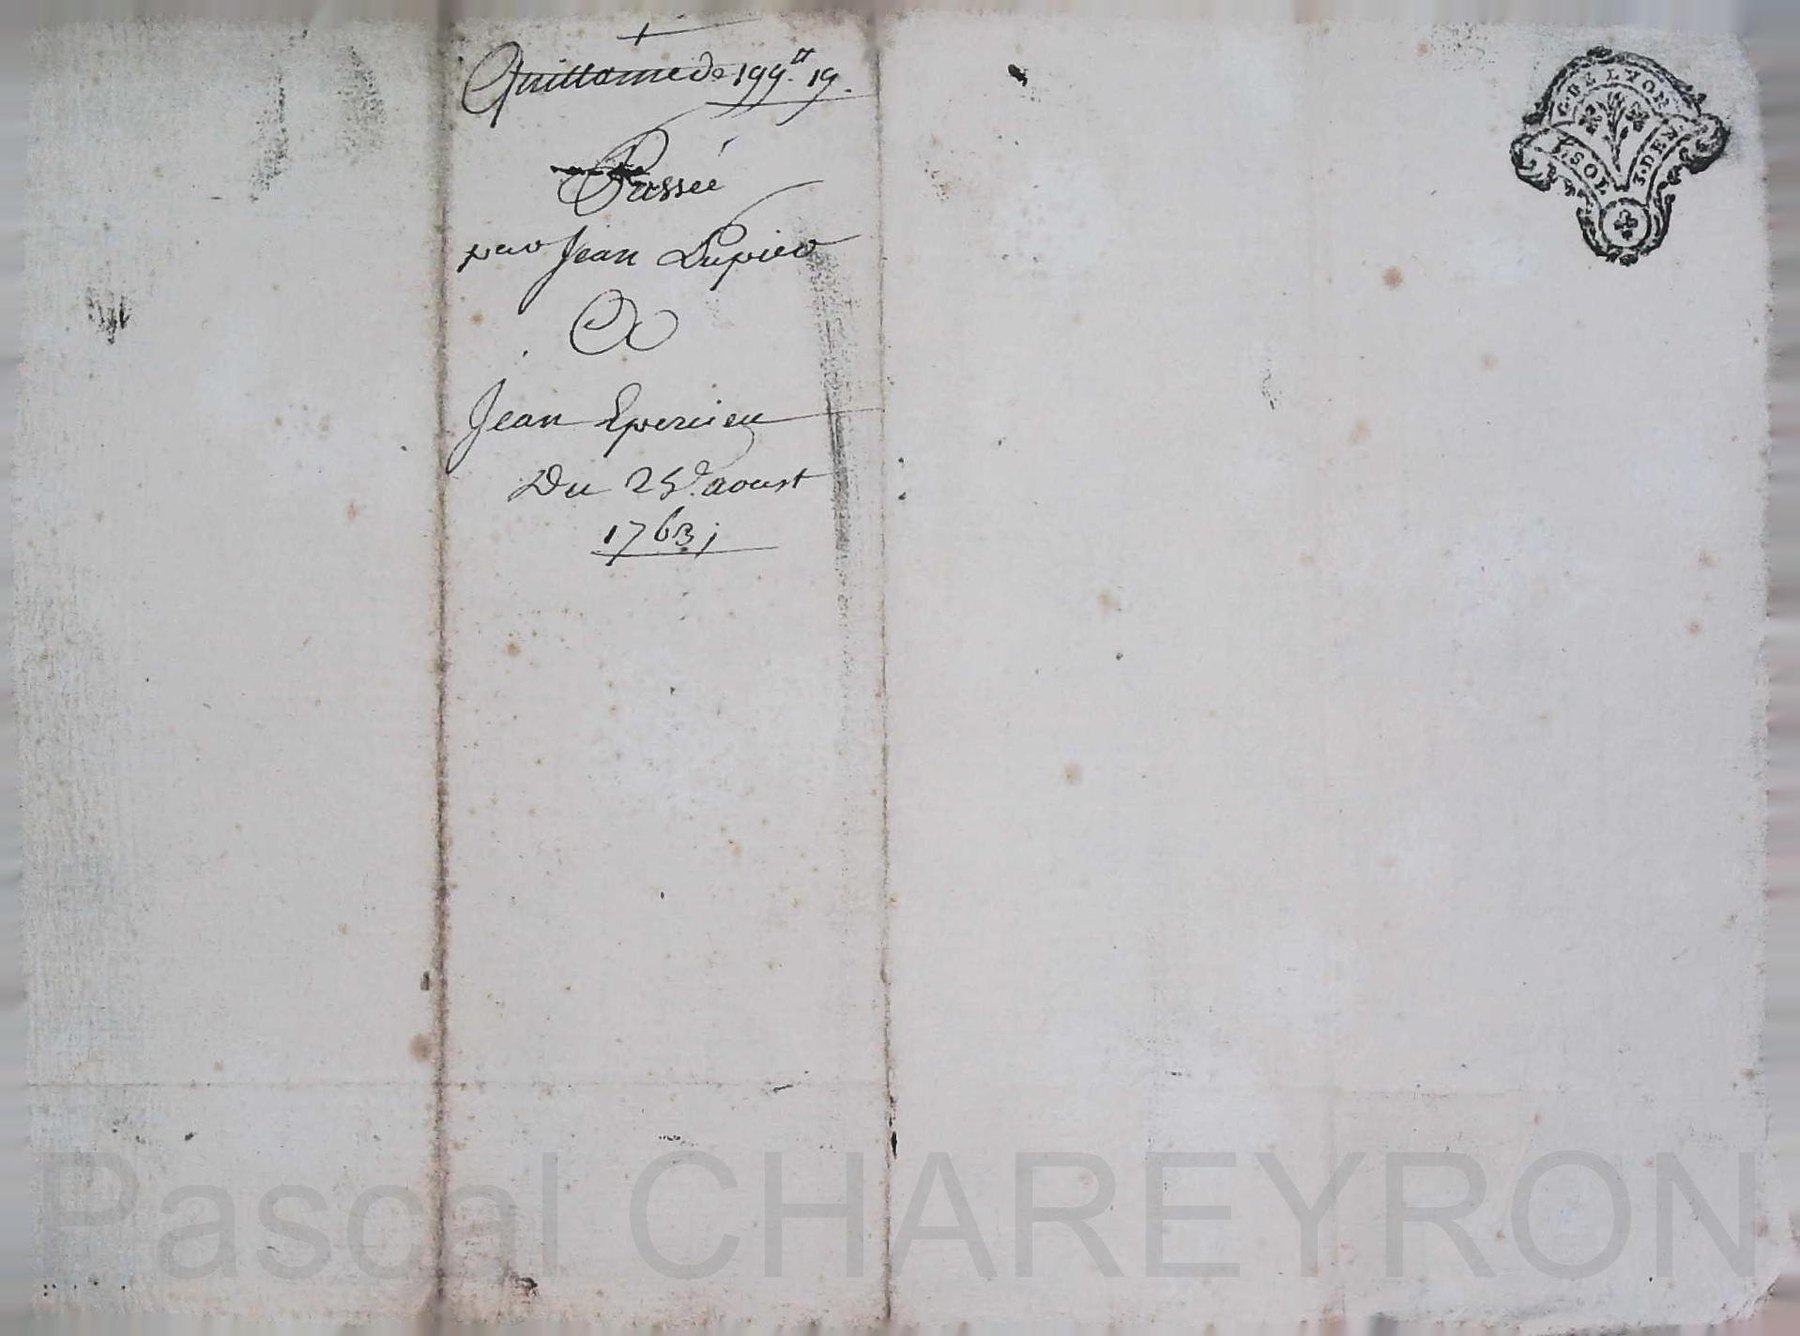 Quittance de 199.₶ 19.
Passée
par Jean Dupier
A
Jean Epercieu
Du 25.e aoust
1763;
G. DE LYON
1. SOL 3. DEN.
Pascal CHAREYRON